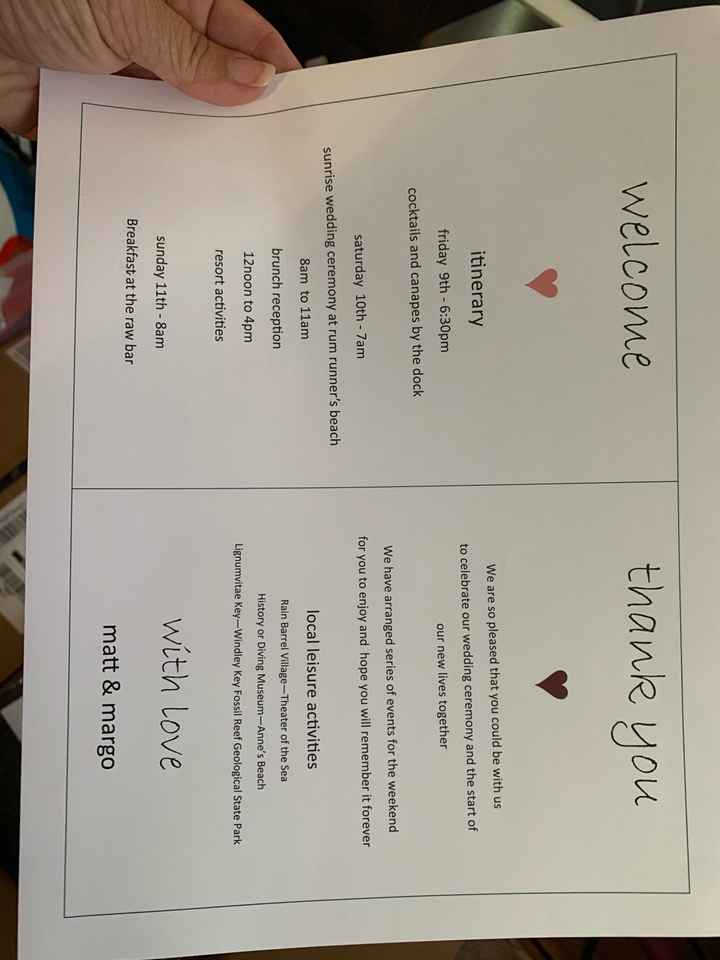 welcome
itinerary
friday 9th - 6:30pm
cocktails and canapes by the dock
saturday 10th - 7am
sunrise wedding ceremony at rum runner's beach
8am to 11am
brunch reception
12noon to 4pm
resort activities
sunday 11th - 8am
Breakfast at the raw bar
thank you
We are so pleased that you could be with us
to celebrate our wedding ceremony and the start of
our new lives together
We have arranged series of events for the weekend
for you to enjoy and hope you will remember it forever
local leisure activities
Rain Barrel Village—Theater of the Sea
History or Diving Museum—Anne's Beach
Lignumvitae Key—Windley Key Fossil Reef Geological State Park
with love
matt & margo